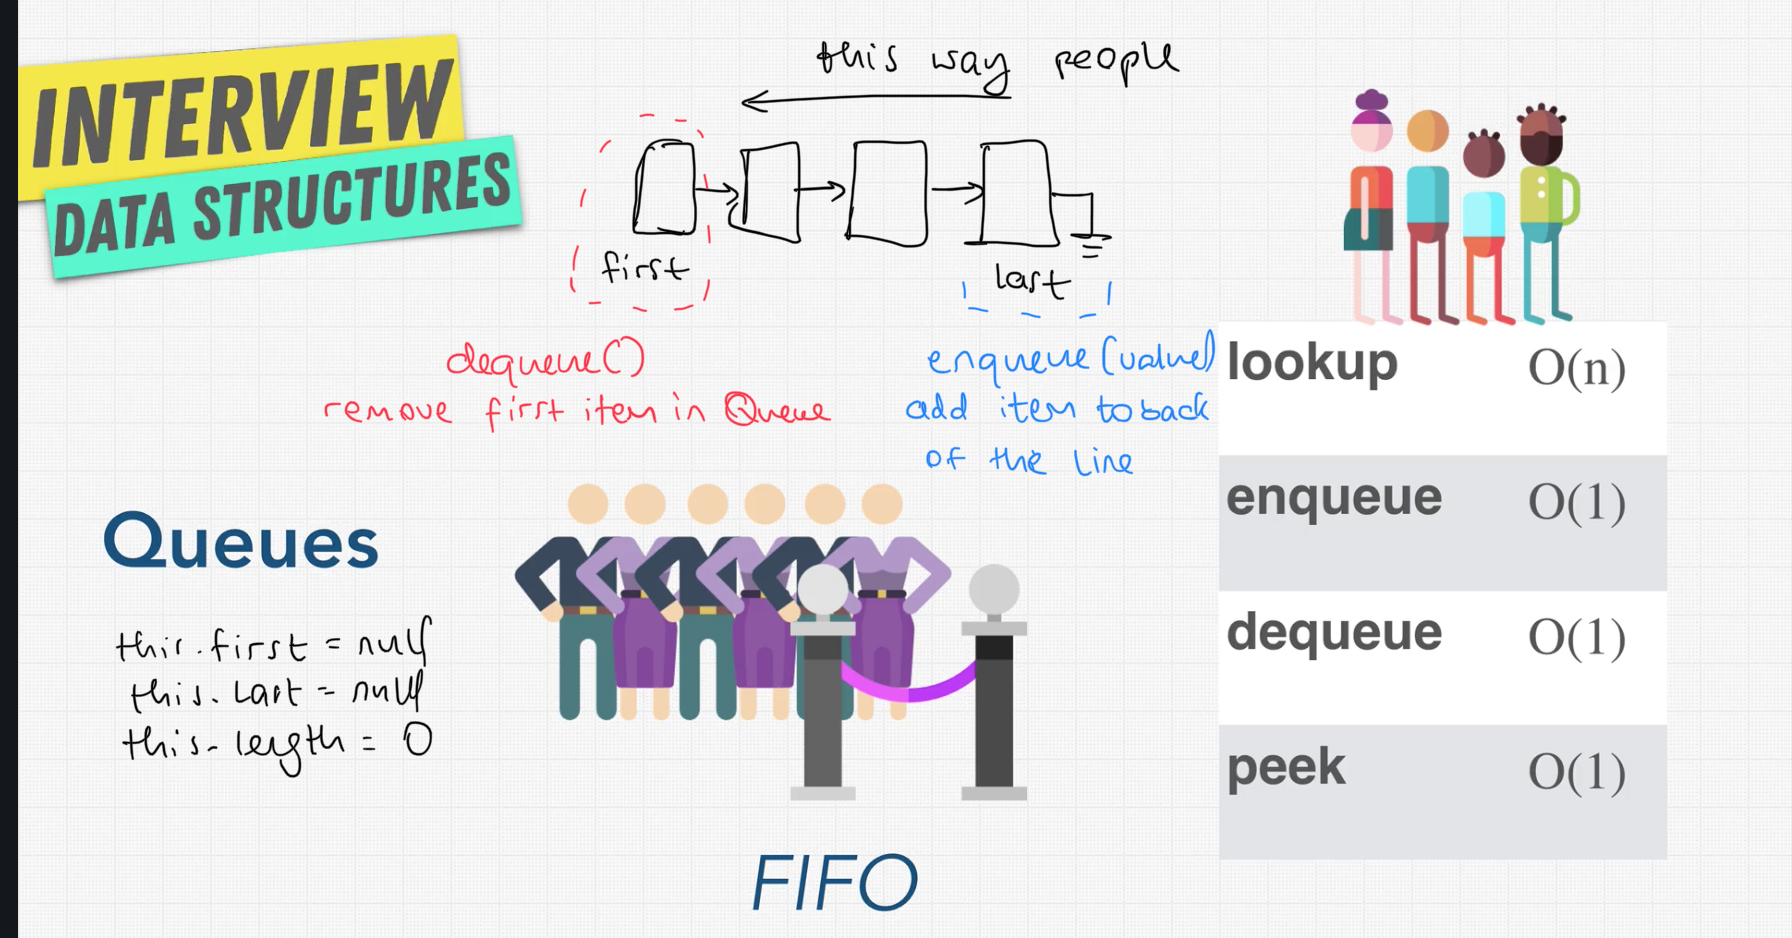 INTERVIEW
DATA STRUCTURES
this way people
first
last
dequeue()
remove first item in Queue
enqueue(value)
add item to back
of the line
Queues
this.first = null
this.last = null
this.length = 0
FIFO
lookup O(n)
enqueue O(1)
dequeue O(1)
peek O(1)